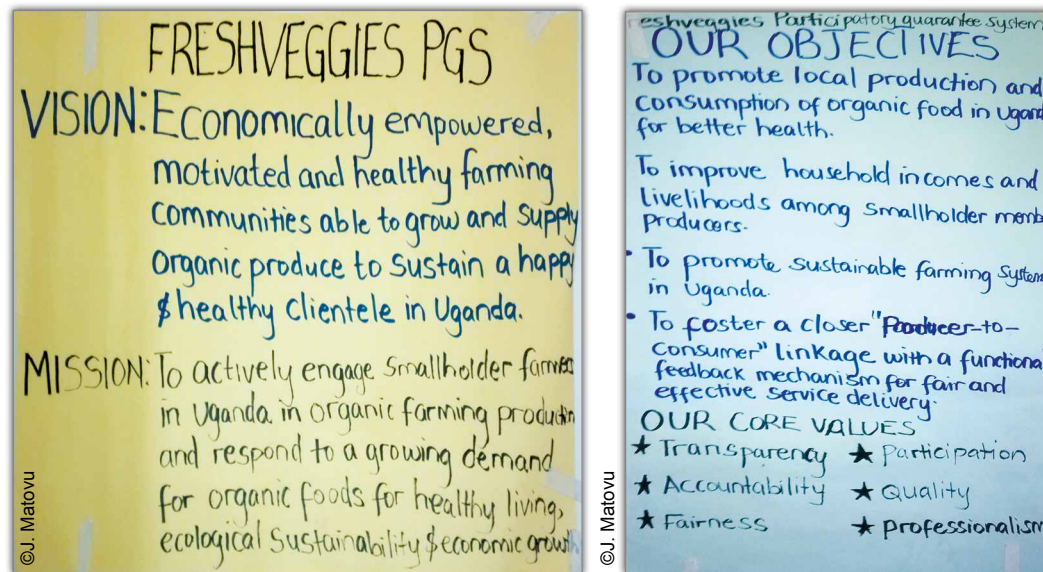 FRESHVEGGIES PGS
VISION: Economically empowered,
motivated and healthy farming
communities able to grow and supply
Organic produce to sustain a happy
& healthy Clientele in Uganda.
MISSION: To actively engage Smallholder farmers
in Uganda in organic farming production
and respond to a growing demand
for organic foods for healthy living,
ecological Sustainability & economic growth
©J. Matovu
eshveggies Participatory guarantee System
OUR OBJECTIVES
To promote local production and
Consumption of organic food in Ugand
for better health.
To improve household incomes and
Livelihoods among Smallholder memb
producers.
• To promote sustainable farming System
in Uganda.
• To foster a closer "Producer-to-
Consumer" linkage with a functional
feedback mechanism for fair and
effective service delivery.
OUR CORE VALUES
★ Transparency ★ Participation
★ Accountability ★ Quality
★ Fairness ★ professionalism
©J. Matovu